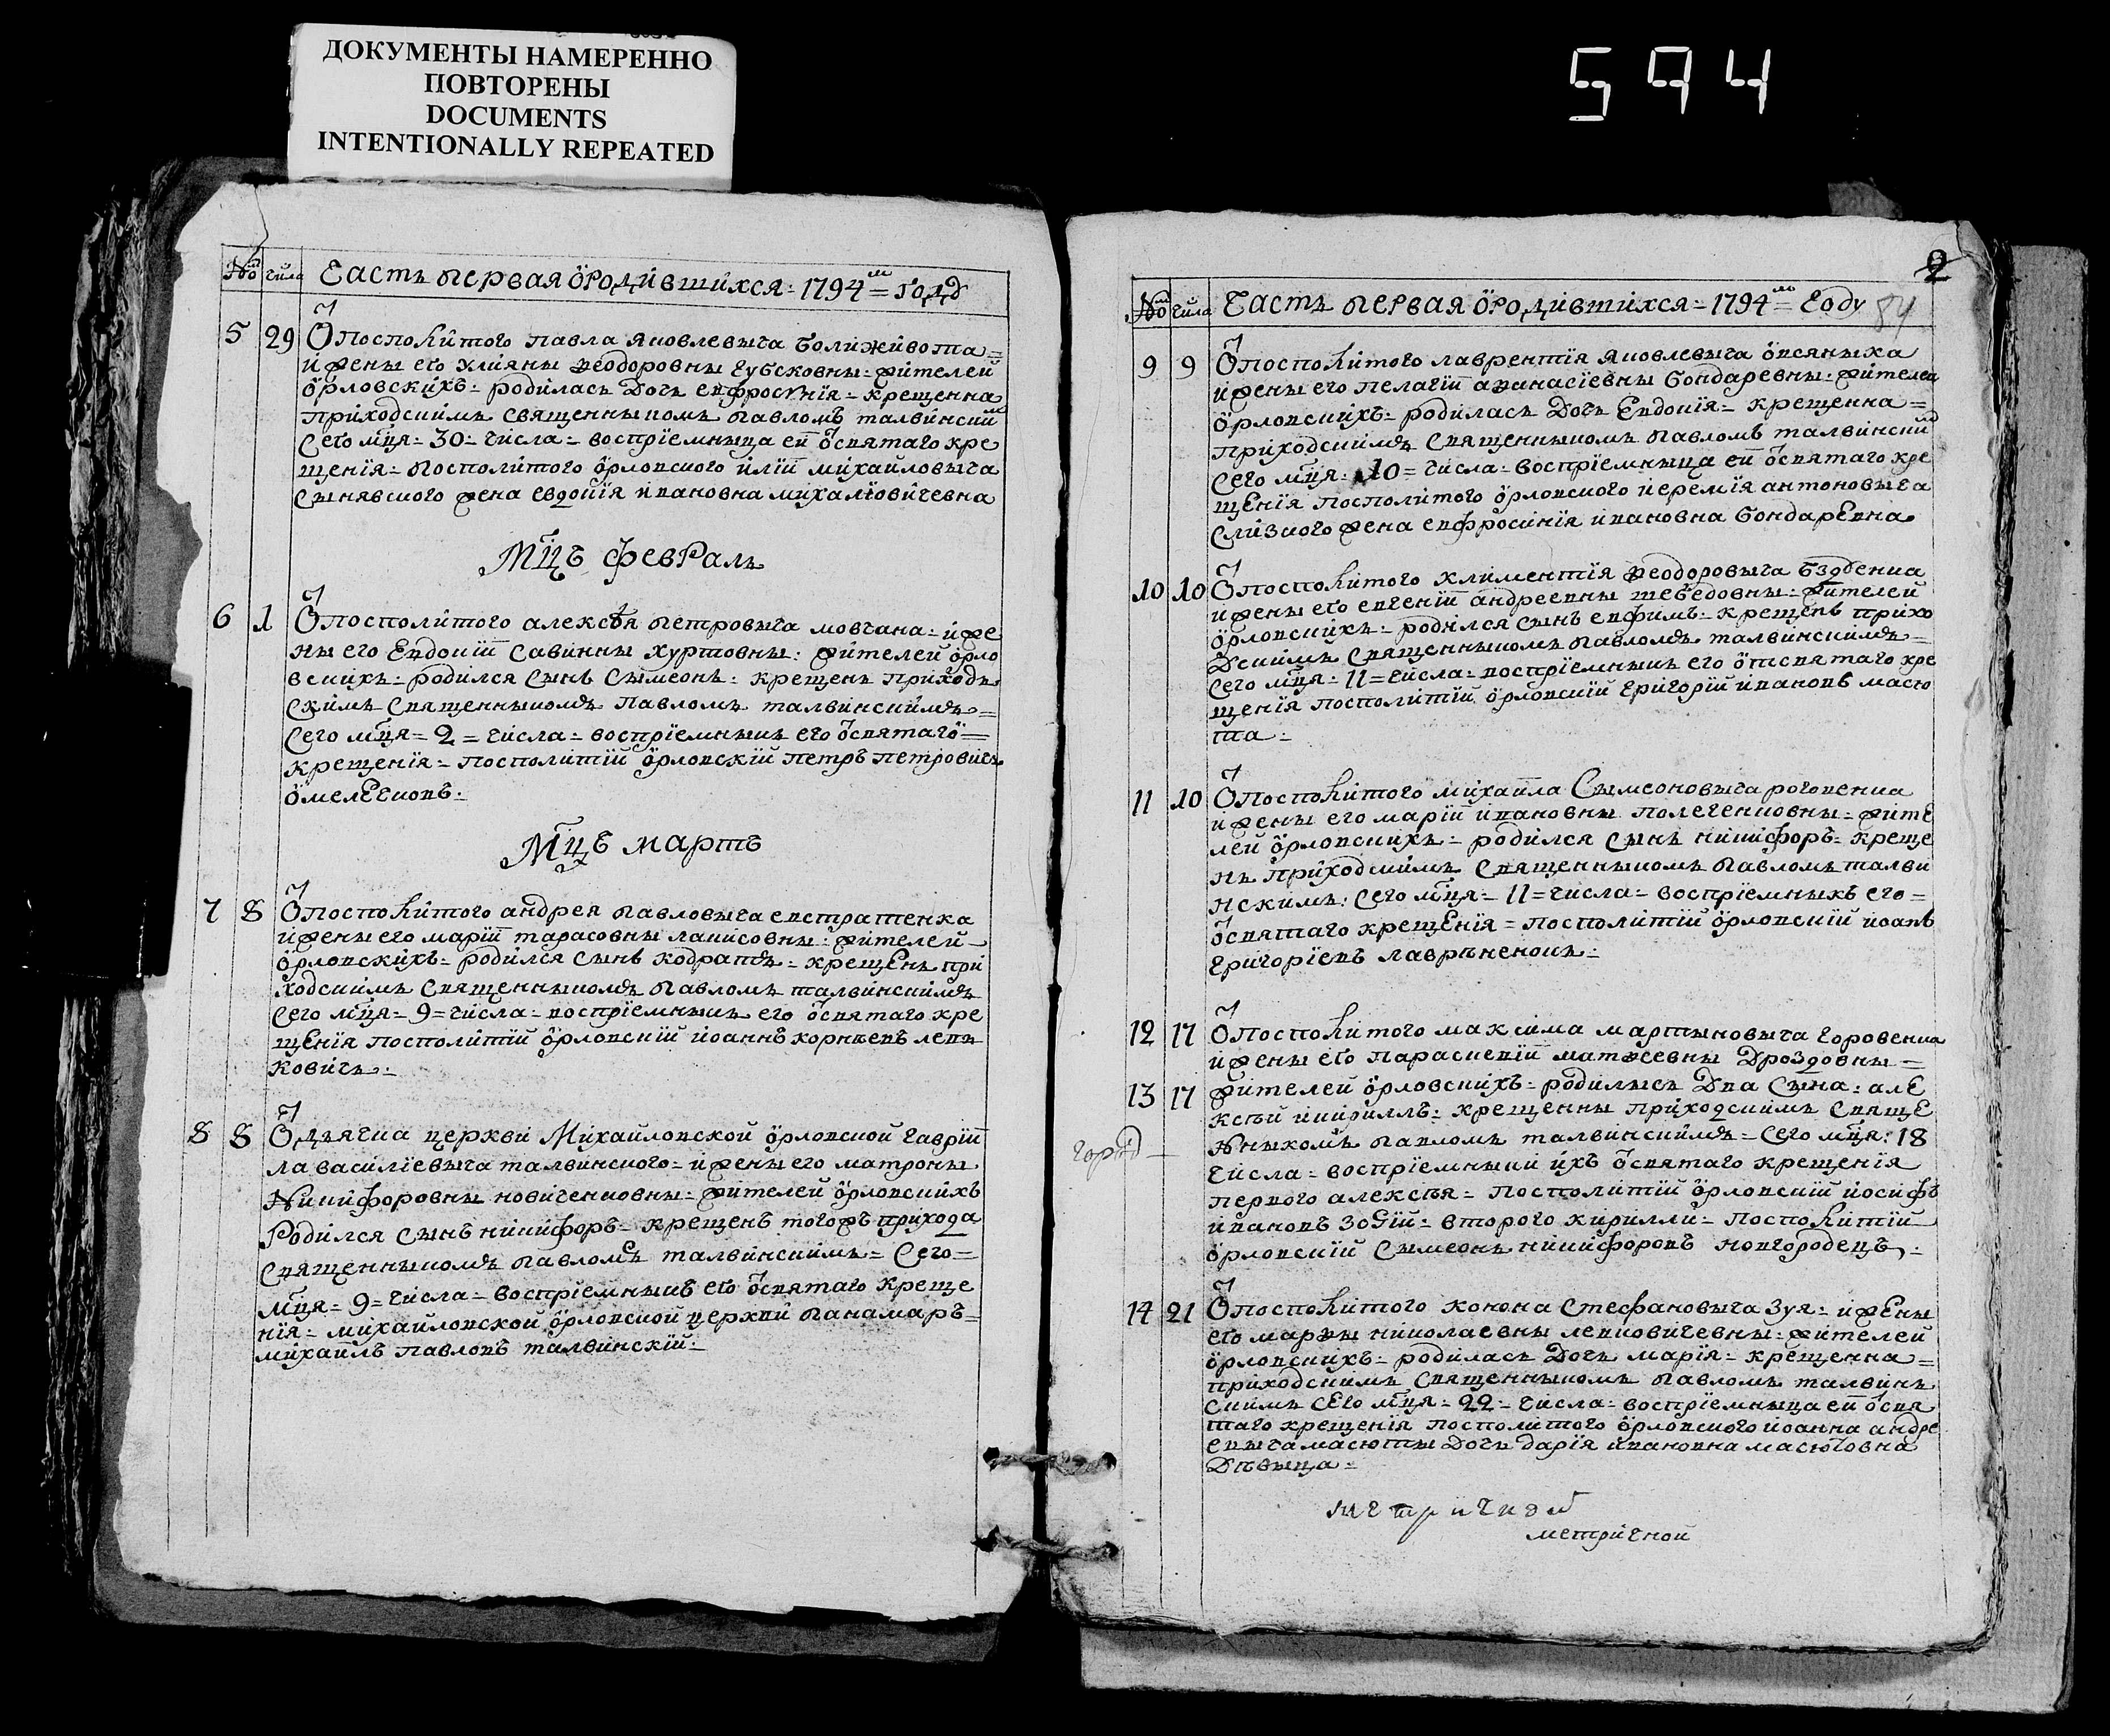 ДОКУМЕНТЫ НАМЕРЕННО
ПОВТОРЕНЫ
DOCUMENTS
INTENTIONALLY REPEATED
594
№ числа Часть первая ѻродившихся: 1794 = году
5 29 Ѿ посполитого павла яковлевыча болиживота =
и жены его улияны ѳеодоровны губсковны = жителей
ѻрловскихъ = родилась дочь ефросинїя = крещенна
приходскимъ священныкомъ павломъ талвинским
сего мця = 30 = числа = воспрїемныца ей ѿ святаго кре
щенїя = посполитого ѻрловского илїи михайловыча
сынявского жена евдокїя ивановна михалїовичевна
Мцъ февраль
6 1 Ѿ посполитого алексѣя петровыча мовчана = и же
ны его евдокїи савинны хуртовны: жителей ѻрло
вскихъ = родился сынъ сымеонъ: крещенъ приходъ
скимъ священныкомъ павломъ талвинскимъ =
сего мця = 2 = числа = воспрїемныкъ его ѿ святаго =
крещенїя = посполитїй ѻрловскїй петръ петровичъ
ѻмелечковъ:
Мцъ мартъ
7 8 Ѿ посполитого андрея павловыча евстратенка
и жены его марїи тарасовны лакисовны: жителей
ѻрловскихъ = родился сынъ кодратъ = крещенъ при
ходскимъ священныкомъ павломъ талвинскимъ
сего мця = 9 = числа = воспрїемныкъ его ѿ святаго кре
щенїя посполитїй ѻрловскїй иоаннъ корнѣевъ левъ
ковичъ:
8 8 Ѿ дьячка церкви михайловской ѻрловской гаврїи
ла василїевыча талвинского = и жены его матроны
никифоровны новиченковны = жителей ѻрловскихъ
родился сынъ никифоръ = крещенъ тогожъ прихода
священныкомъ павломъ талвинскимъ = сего =
мця = 9 = числа = воспрїемныкъ его ѿ святаго креще
нїя = михайловской ѻрловской церкви панамаръ =
михаилъ павловъ талвинскїй:
2
84
№ числа Часть первая ѻродившихся = 1794 = году
9 9 Ѿ посполитого лаврентїя яковлевыча ѻвсяныка
и жены его пелагїи аѳанасїевны бондаревны: жителей
ѻрловскихъ = родилась дочь евдокїя = крещенна =
приходскимъ священныкомъ павломъ талвинским
сего мця: 10 = числа = воспрїемныца ей ѿ святаго кре
щенїя посполитого ѻрловского иеремїя антоновыча
слизкого жена евфросинїя ивановна бондаревна
10 10 Ѿ посполитого климентїя ѳеодоровыча бзденка
и жены его евгенїи андреевны шебедовны = жителей
ѻрловскихъ = родился сынъ евфимъ = крещенъ прихо
дскимъ священныкомъ павломъ талвинскимъ =
сего мця = 11 = числа = воспрїемныкъ его ѿ святаго кре
щенїя посполитїй ѻрловскїй григорїй ивановъ масю
та =
11 10 Ѿ посполитого михаила сымеоновыча роговенка
и жены его марїи ивановны полегенковны = жите
лей ѻрловскихъ = родился сынъ никифоръ = креще
нъ приходскимъ священныкомъ павломъ талви
нскимъ: сего мця = 11 = числа = воспрїемныкъ его =
ѿ святаго крещенїя = посполитїй ѻрловскїй иоанъ
григорїевъ лаврѣненокъ =
12 17 Ѿ посполитого максима мартыновыча горовенка
и жены его параскевїи матѳеевны дроздовны =
13 17 жителей ѻрловскихъ = родилысь два сына: але
ксѣй и кириллъ: крещенны приходскимъ свяще
нныкомъ павломъ талвинскимъ = сего мця: 18
числа = воспрїемныки ихъ ѿ святаго крещенїя
первого алексѣя = посполитїй ѻрловскїй иосифъ
ивановъ = второго кирилли = посполитїй
ѻрловскїй сымеонъ никифоровъ новгородецъ:
14 21 Ѿ посполитого конона стефановыча зуя = и жены
его марѳы николаевны левковичевны = жителей
ѻрловскихъ = родилась дочь марїя = крещенна =
приходскимъ священныкомъ павломъ талвинъ
скимъ сего мця = 22 = числа = воспрїемныца ей ѿ свя
таго крещенїя посполитого ѻрловского иоанна андре
евыча масюты дочь дарїя ивановна масютовна
дѣвыца =
метричной
метричной